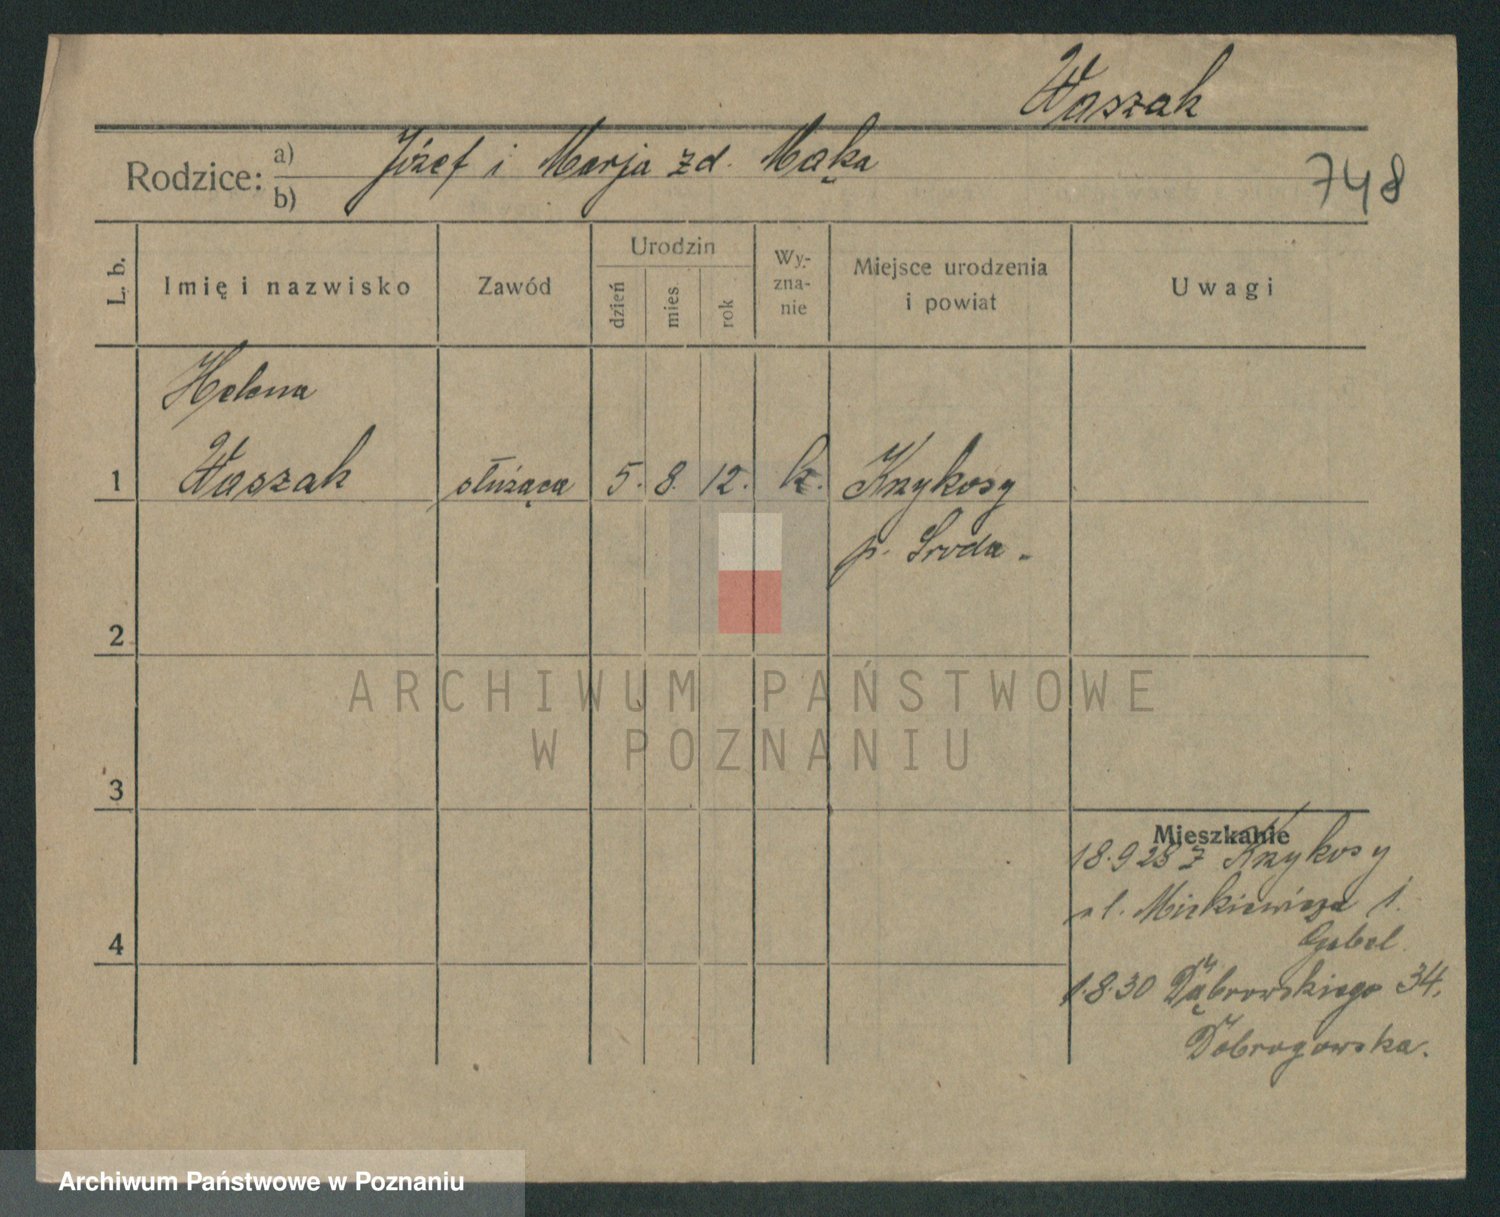 Waszak
Rodzice: a) Józef i Marja zd. Mąka
b)
748
L. b.
Imię i nazwisko
Zawód
Urodzin
dzień
mies
rok
Wy-
zna-
nie
Miejsce urodzenia
i powiat
Uwagi
Helena
1 Waszak służąca 5. 8. 12. k. Krzykosy
p. Sroda
2
3
4
Mieszkanie
18.9 28 z Krzykosy
ul. Mickiewicza 1.
Gebel
1.8.30 Dąbrowskiego 34.
Dobrogowska.
ARCHIWUM PAŃSTWOWE
W POZNANIU
Archiwum Państwowe w Poznaniu